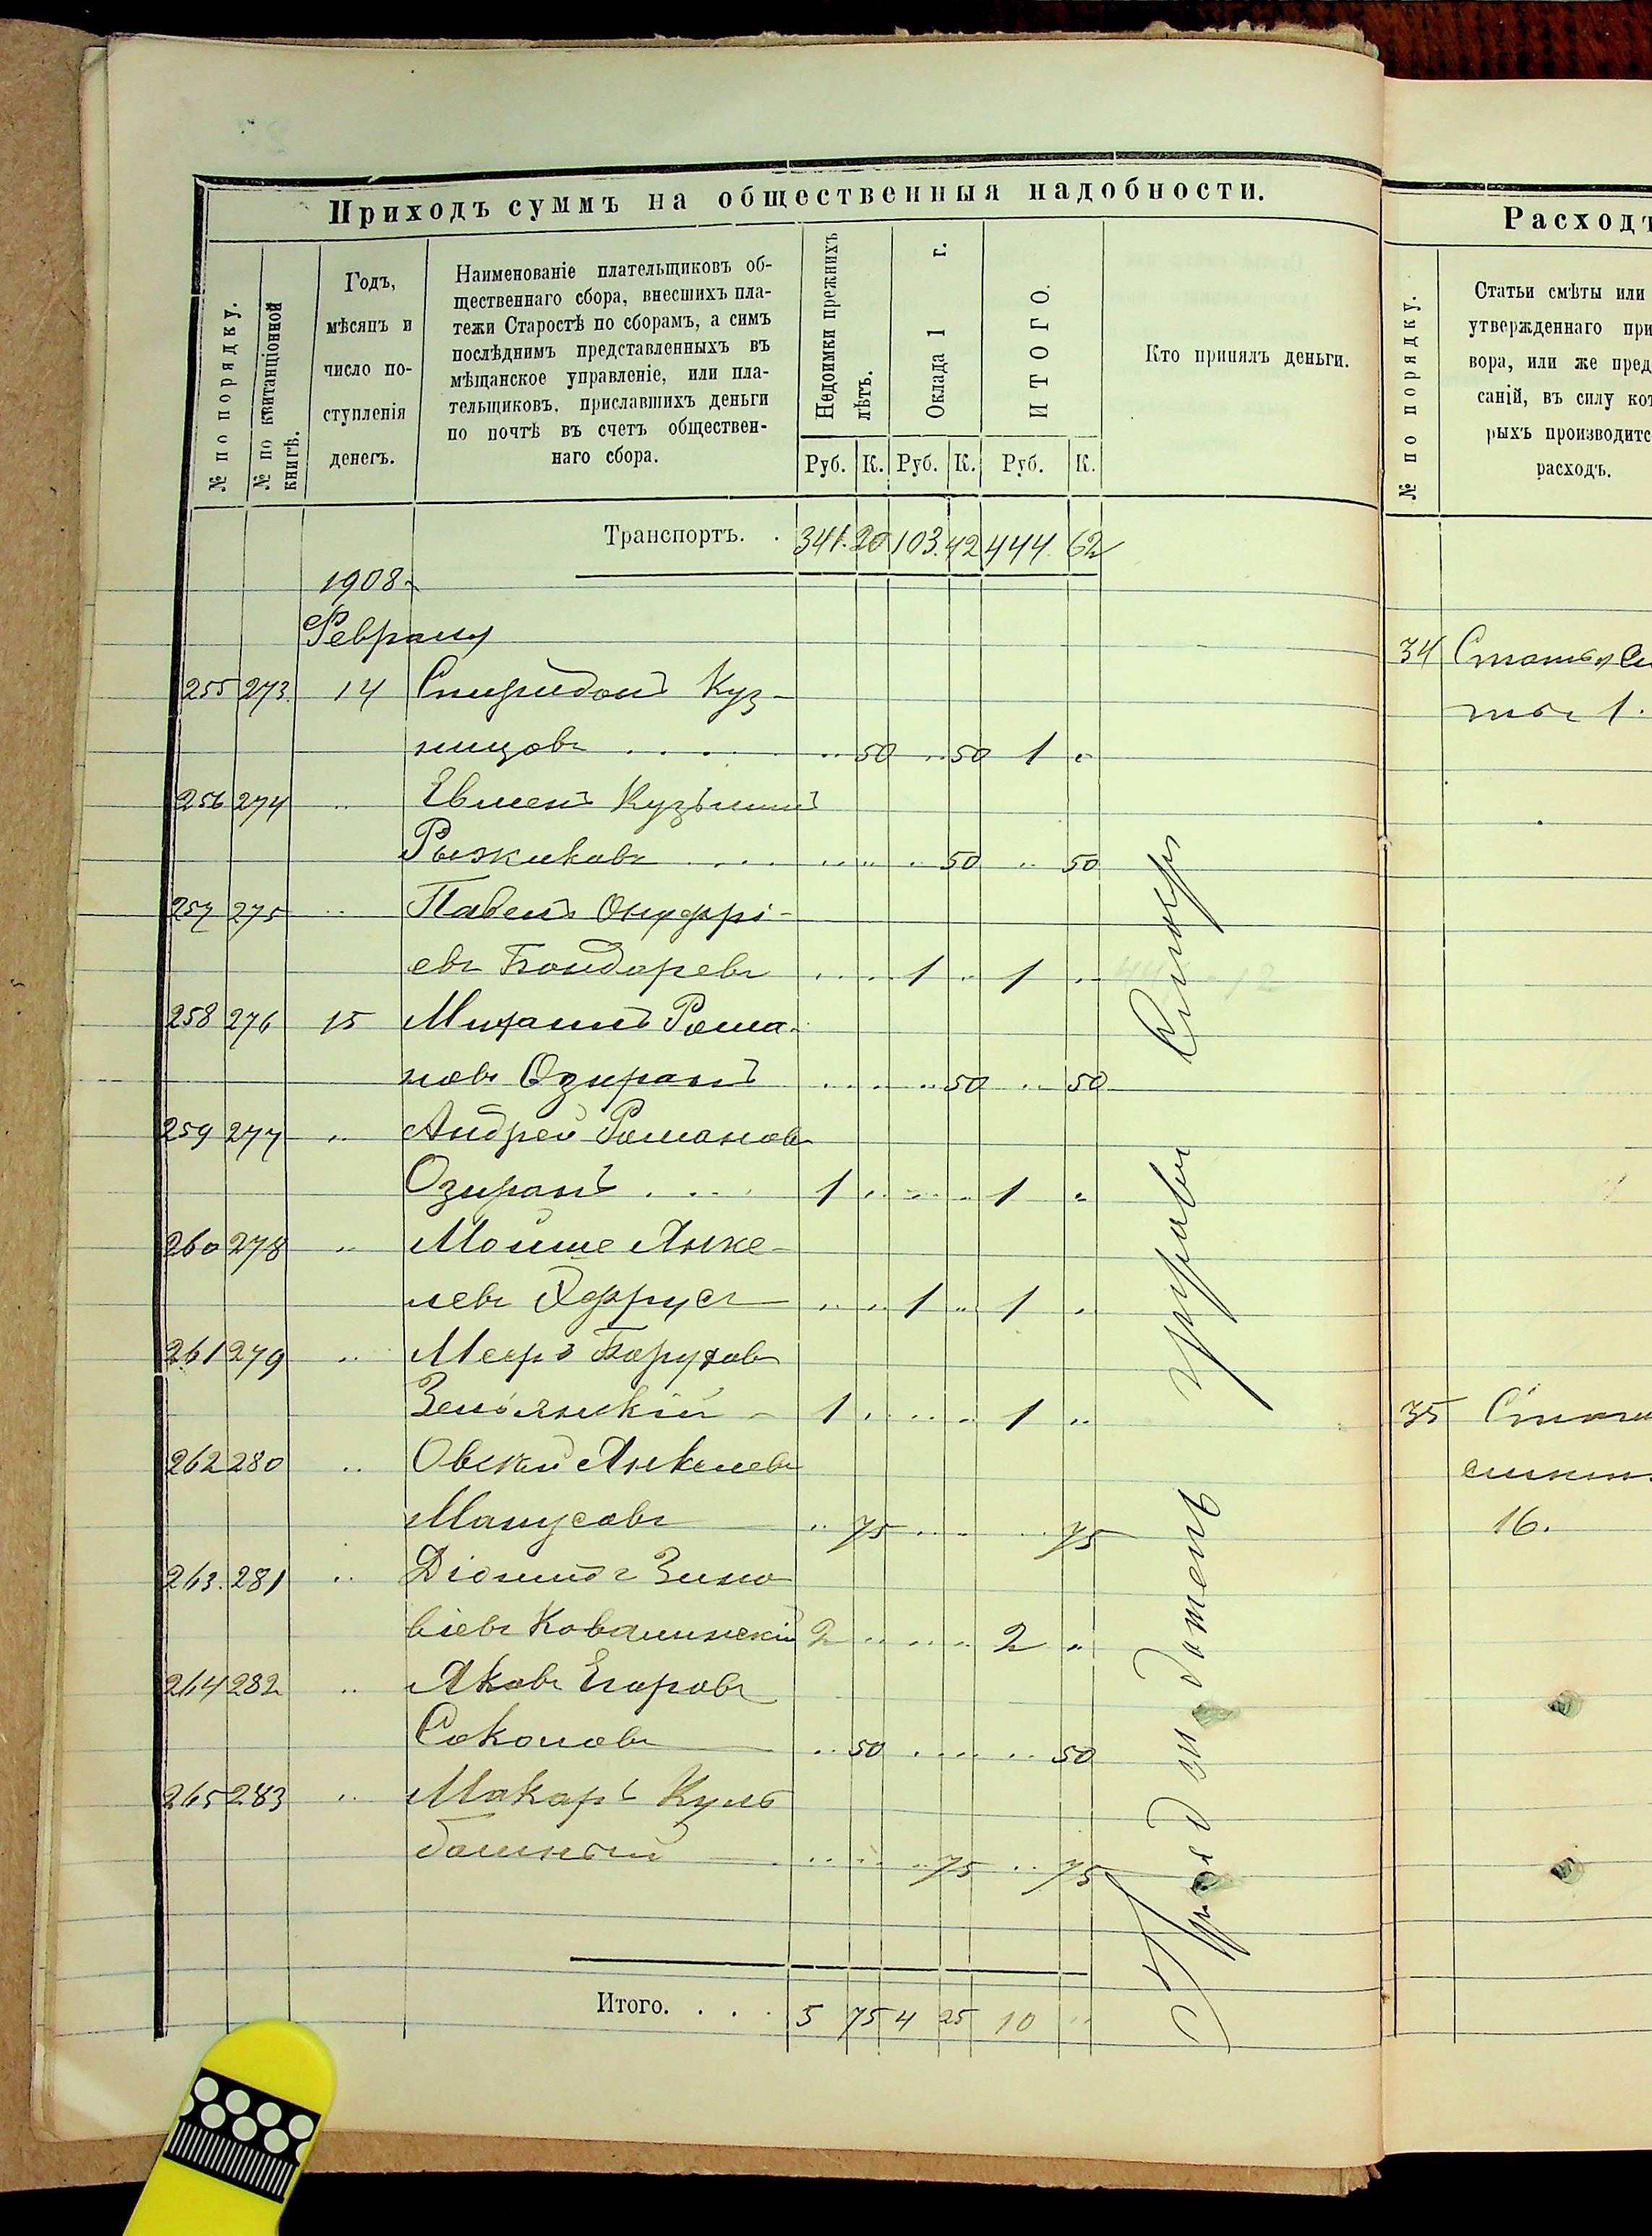 Приходъ суммъ на общественныя надобности.
№ по порядку.
№ по квитанціонной книгѣ.
Годъ,
мѣсяцъ и
число по-
ступленія
денегъ.
Наименованіе плательщиковъ об-
щественнаго сбора, внесшихъ пла-
тежи Старостѣ по сборамъ, а симъ
послѣднимъ представленныхъ въ
мѣщанское управленіе, или пла-
тельщиковъ, приславшихъ деньги
по почтѣ въ счетъ обществен-
наго сбора.
Недоимки прежнихъ лѣтъ.
Оклада 1 г.
ИТОГО.
Кто принялъ деньги.
Руб. К. Руб. К. Руб. К.
Транспортъ. . 341. 20 103. 42 444. 62
1908
Февраля
255 273. 14 Спиридонъ Куз-
нецовъ . . . . . „ 50 „ 50 1 „
256 274 „ Евменъ Кузьминъ
Рыжиковъ . . . . „ „ „ 50 „ 50
257 275 „ Павелъ Онуфрі-
евъ Бондаревъ „ „ 1 „ 1 „
258 276 15 Михаилъ Рома-
новъ Озиранъ „ „ „ 50 „ 50
259 277 „ Андрей Романовъ
Озиранъ . . . . 1 „ „ „ 1 „
260 278 „ Мойше Янке-
левъ „ „ 1 „ 1 „
261 279 „ Мееръ Боруховъ
1 „ „ „ 1 „
262 280 „ Овсей Янкелевъ
Манусовъ „ 75 „ „ „ 75
263. 281 „ Діомидъ Зино
віевъ Ковалинскій 2 „ „ „ 2 „
264 282 „ Яковъ Егоровъ
Соколовъ „ 50 „ „ „ 50
265 283 „ Макаръ Куль
башный „ „ „ 75 „ 75
Итого. . . . 5 75 4 25 10 „
управы
Расходъ
№ по порядку.
Статьи смѣты или
утвержденнаго при
вора, или же пред
саній, въ силу кот
рыхъ производитс
расходъ.
34 Статья см
ты 1.
35
16.